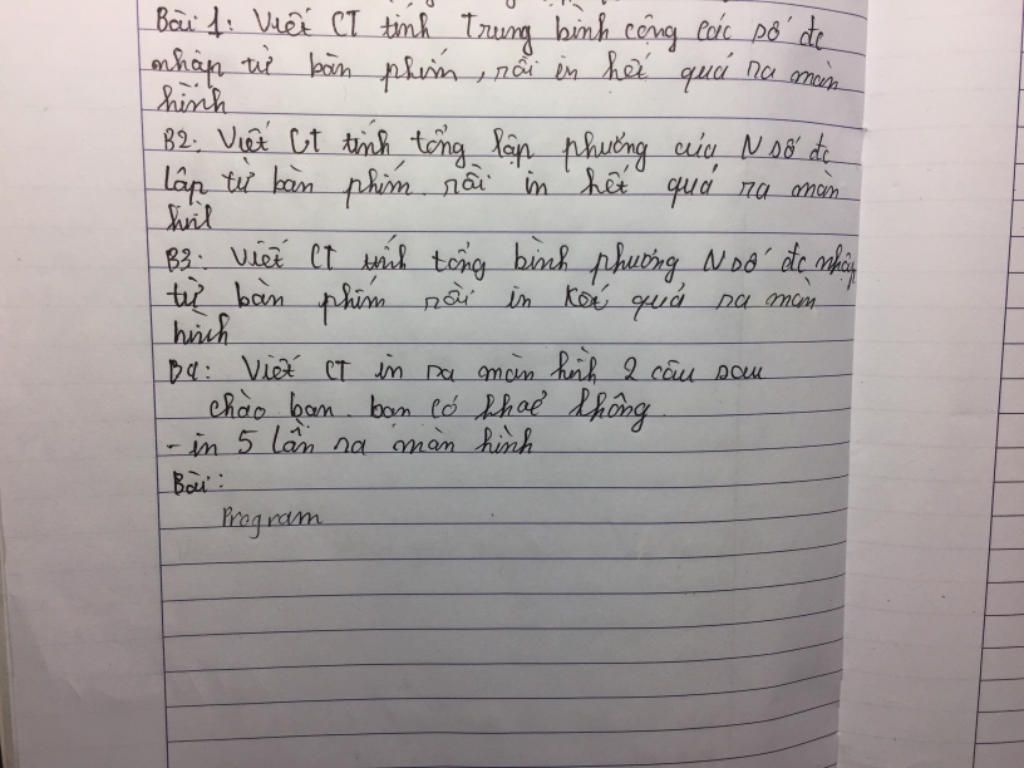 Bài 1: Viết CT tính Trung bình cộng các số đc
nhập từ bàn phím, rồi in hết quả ra màn
hình
B2: Viết CT tính tổng lập phương của N số đc
lập từ bàn phím. rồi in hết quả ra màn
hìh
B3: Viết CT tính tổng bình phương N số đc nhập
từ bàn phím rồi in kết quả ra màn
hình
B4: Viết CT in ra màn hình 2 câu sau
chào bạn. bạn có khoẻ không.
- in 5 lần ra màn hình
Bài:
Program